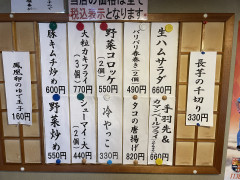 当店の価格は全て
税込表示となります。
長芋の千切り
330円
生ハムサラダ
660円
手羽先&
440円
パリパリ春巻き(2個)
490円
タコの唐揚げ
820円
野菜コロッケ
(2個)
550円
冷やっこ
330円
大粒カキフライ
(3個)
770円
シューマイ(大)
440円
豚キムチ炒め
600円
野菜炒め
550円
鳳凰卵のゆで玉子
160円